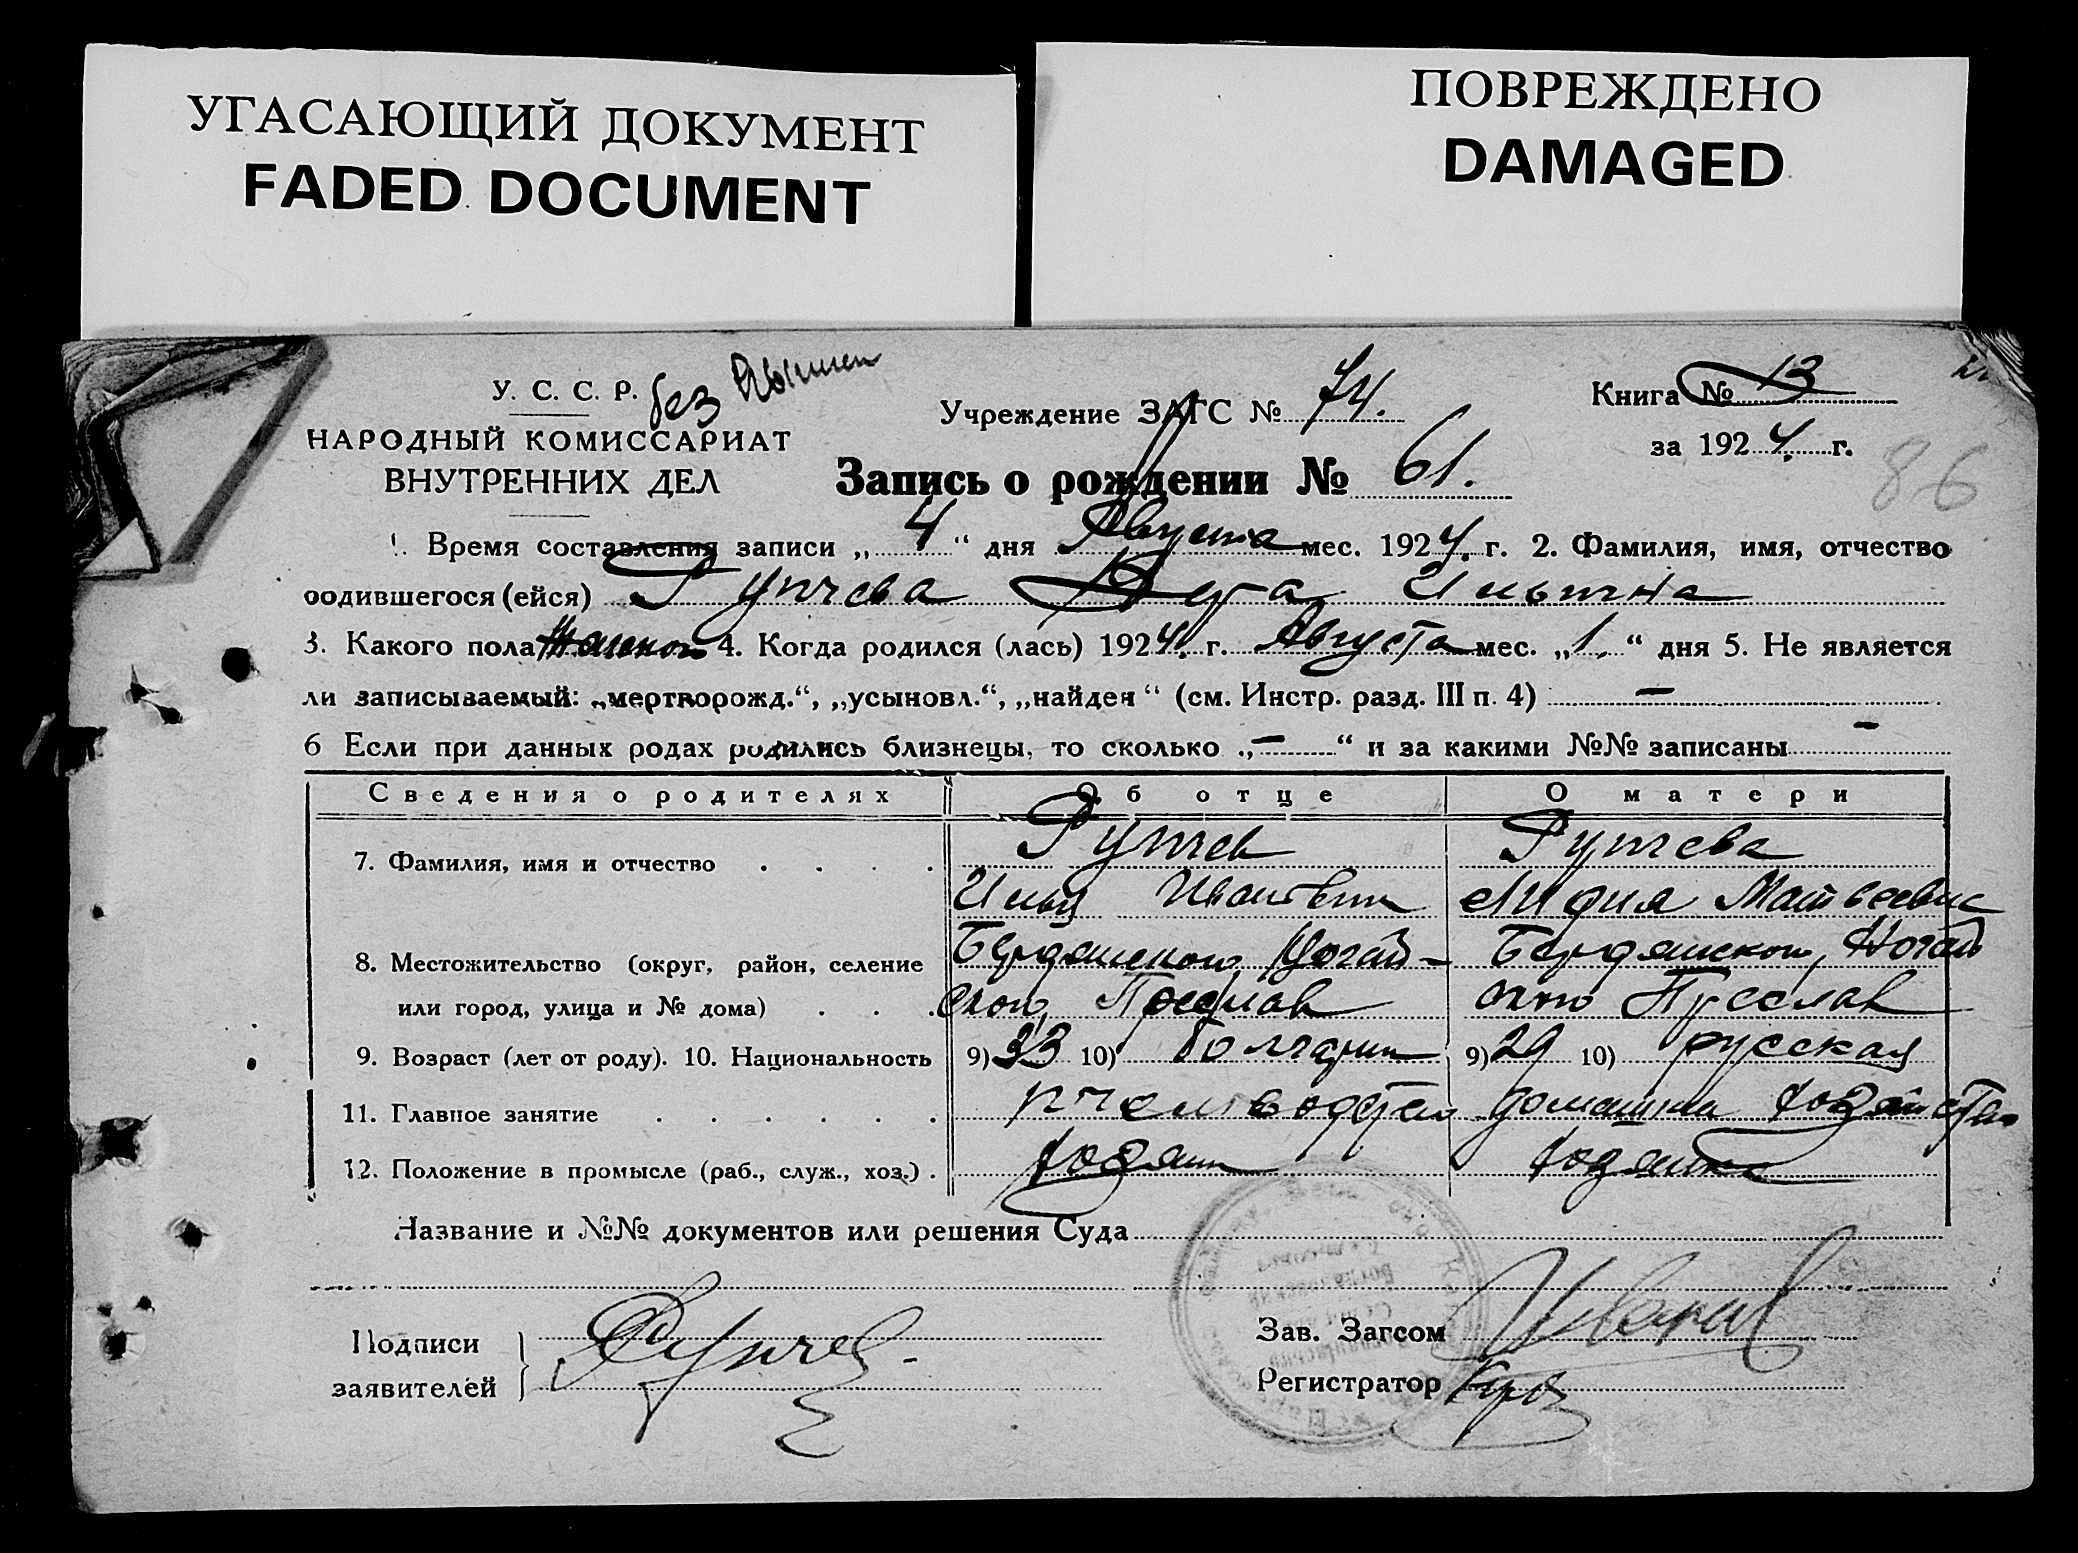 УГАСАЮЩИЙ ДОКУМЕНТ
FADED DOCUMENT
ПОВРЕЖДЕНО
DAMAGED
У. С. С. Р. без
НАРОДНЫЙ КОМИССАРИАТ
ВНУТРЕННИХ ДЕЛ
Учреждение ЗАГС № 74.
Книга № 13
за 1924. г.
86
Запись о рождении № 61.
1. Время составления записи „4“ дня Августа мес. 1924. г. 2. Фамилия, имя, отчество
родившегося (ейся) Гупчева Вера Ильична
3. Какого пола женского 4. Когда родился (лась) 1924. г. Августа мес. „1.“ дня 5. Не является
ли записываемый: „мертворожд.“, „усыновл.“, „найден“ (см. Инстр. разд. III п. 4) —
6 Если при данных родах родились близнецы, то сколько „—“ и за какими №№ записаны —
Сведения о родителях Об отце О матери
7. Фамилия, имя и отчество Гупчев Гупчева
Илья Иванович Лидия Матвеевна
8. Местожительство (округ, район, селение Бердянского, Ногай- Бердянского, Ногай
или город, улица и № дома) ского, Преслав ского Преслав
9. Возраст (лет от роду). 10. Национальность 9) 33 10) болгарин 9) 29 10) русская
11. Главное занятие пчеловодство домашнее хозяйство
12. Положение в промысле (раб., служ., хоз.) хозяин хозяйка
Название и №№ документов или решения Суда
Подписи
заявителей } Гупчев
Зав. Загсом
Регистратор